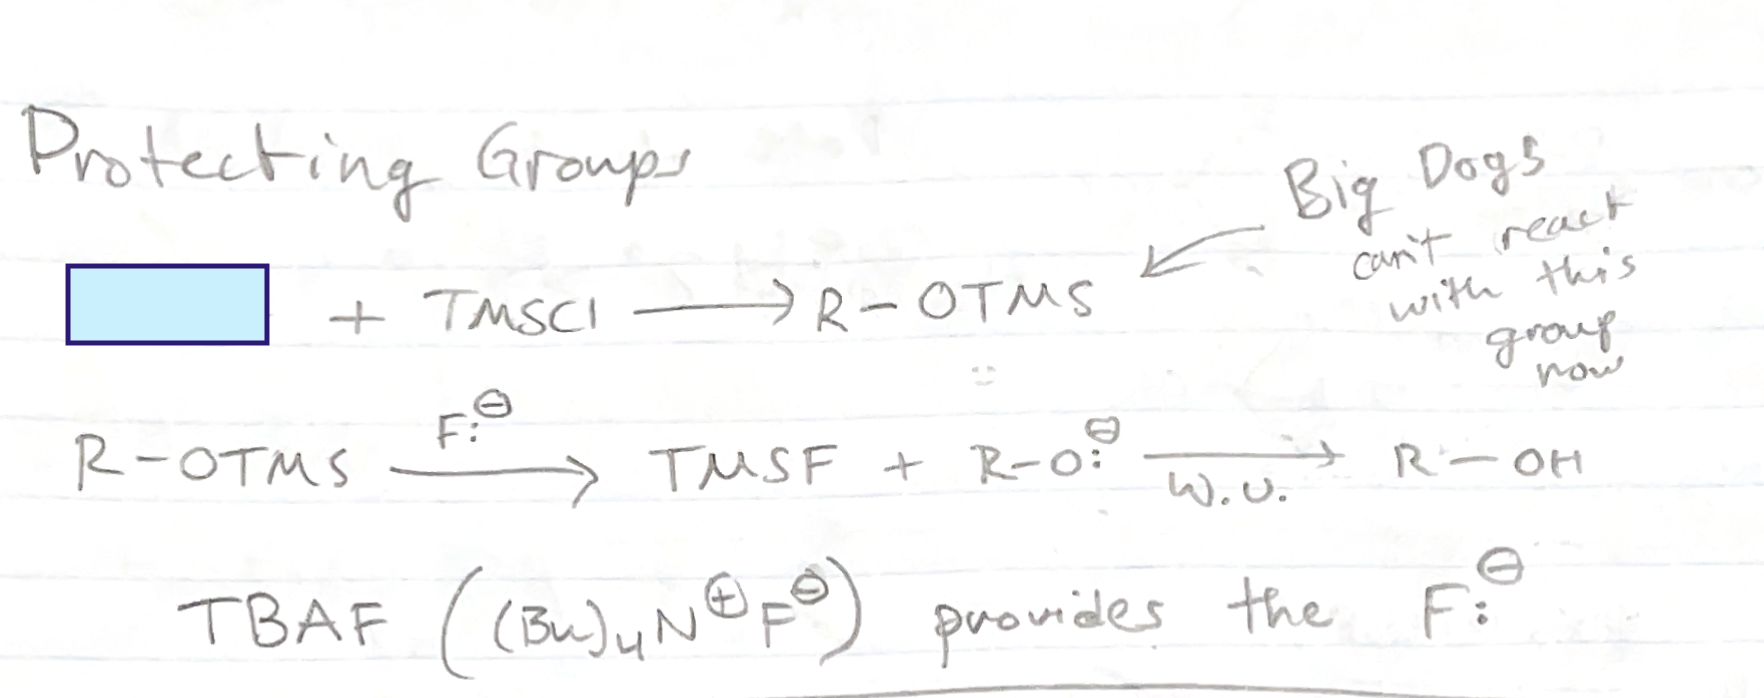 Protecting Groups
+ TMSCl ⟶ R-OTMS
Big Dogs
can't react
with this
group
now
R-OTMS ⟶ F:⊖ TMSF + R-O:⊖ ⟶ W.U. R-OH
TBAF ((Bu)₄N⊕F⊖) provides the F:⊖